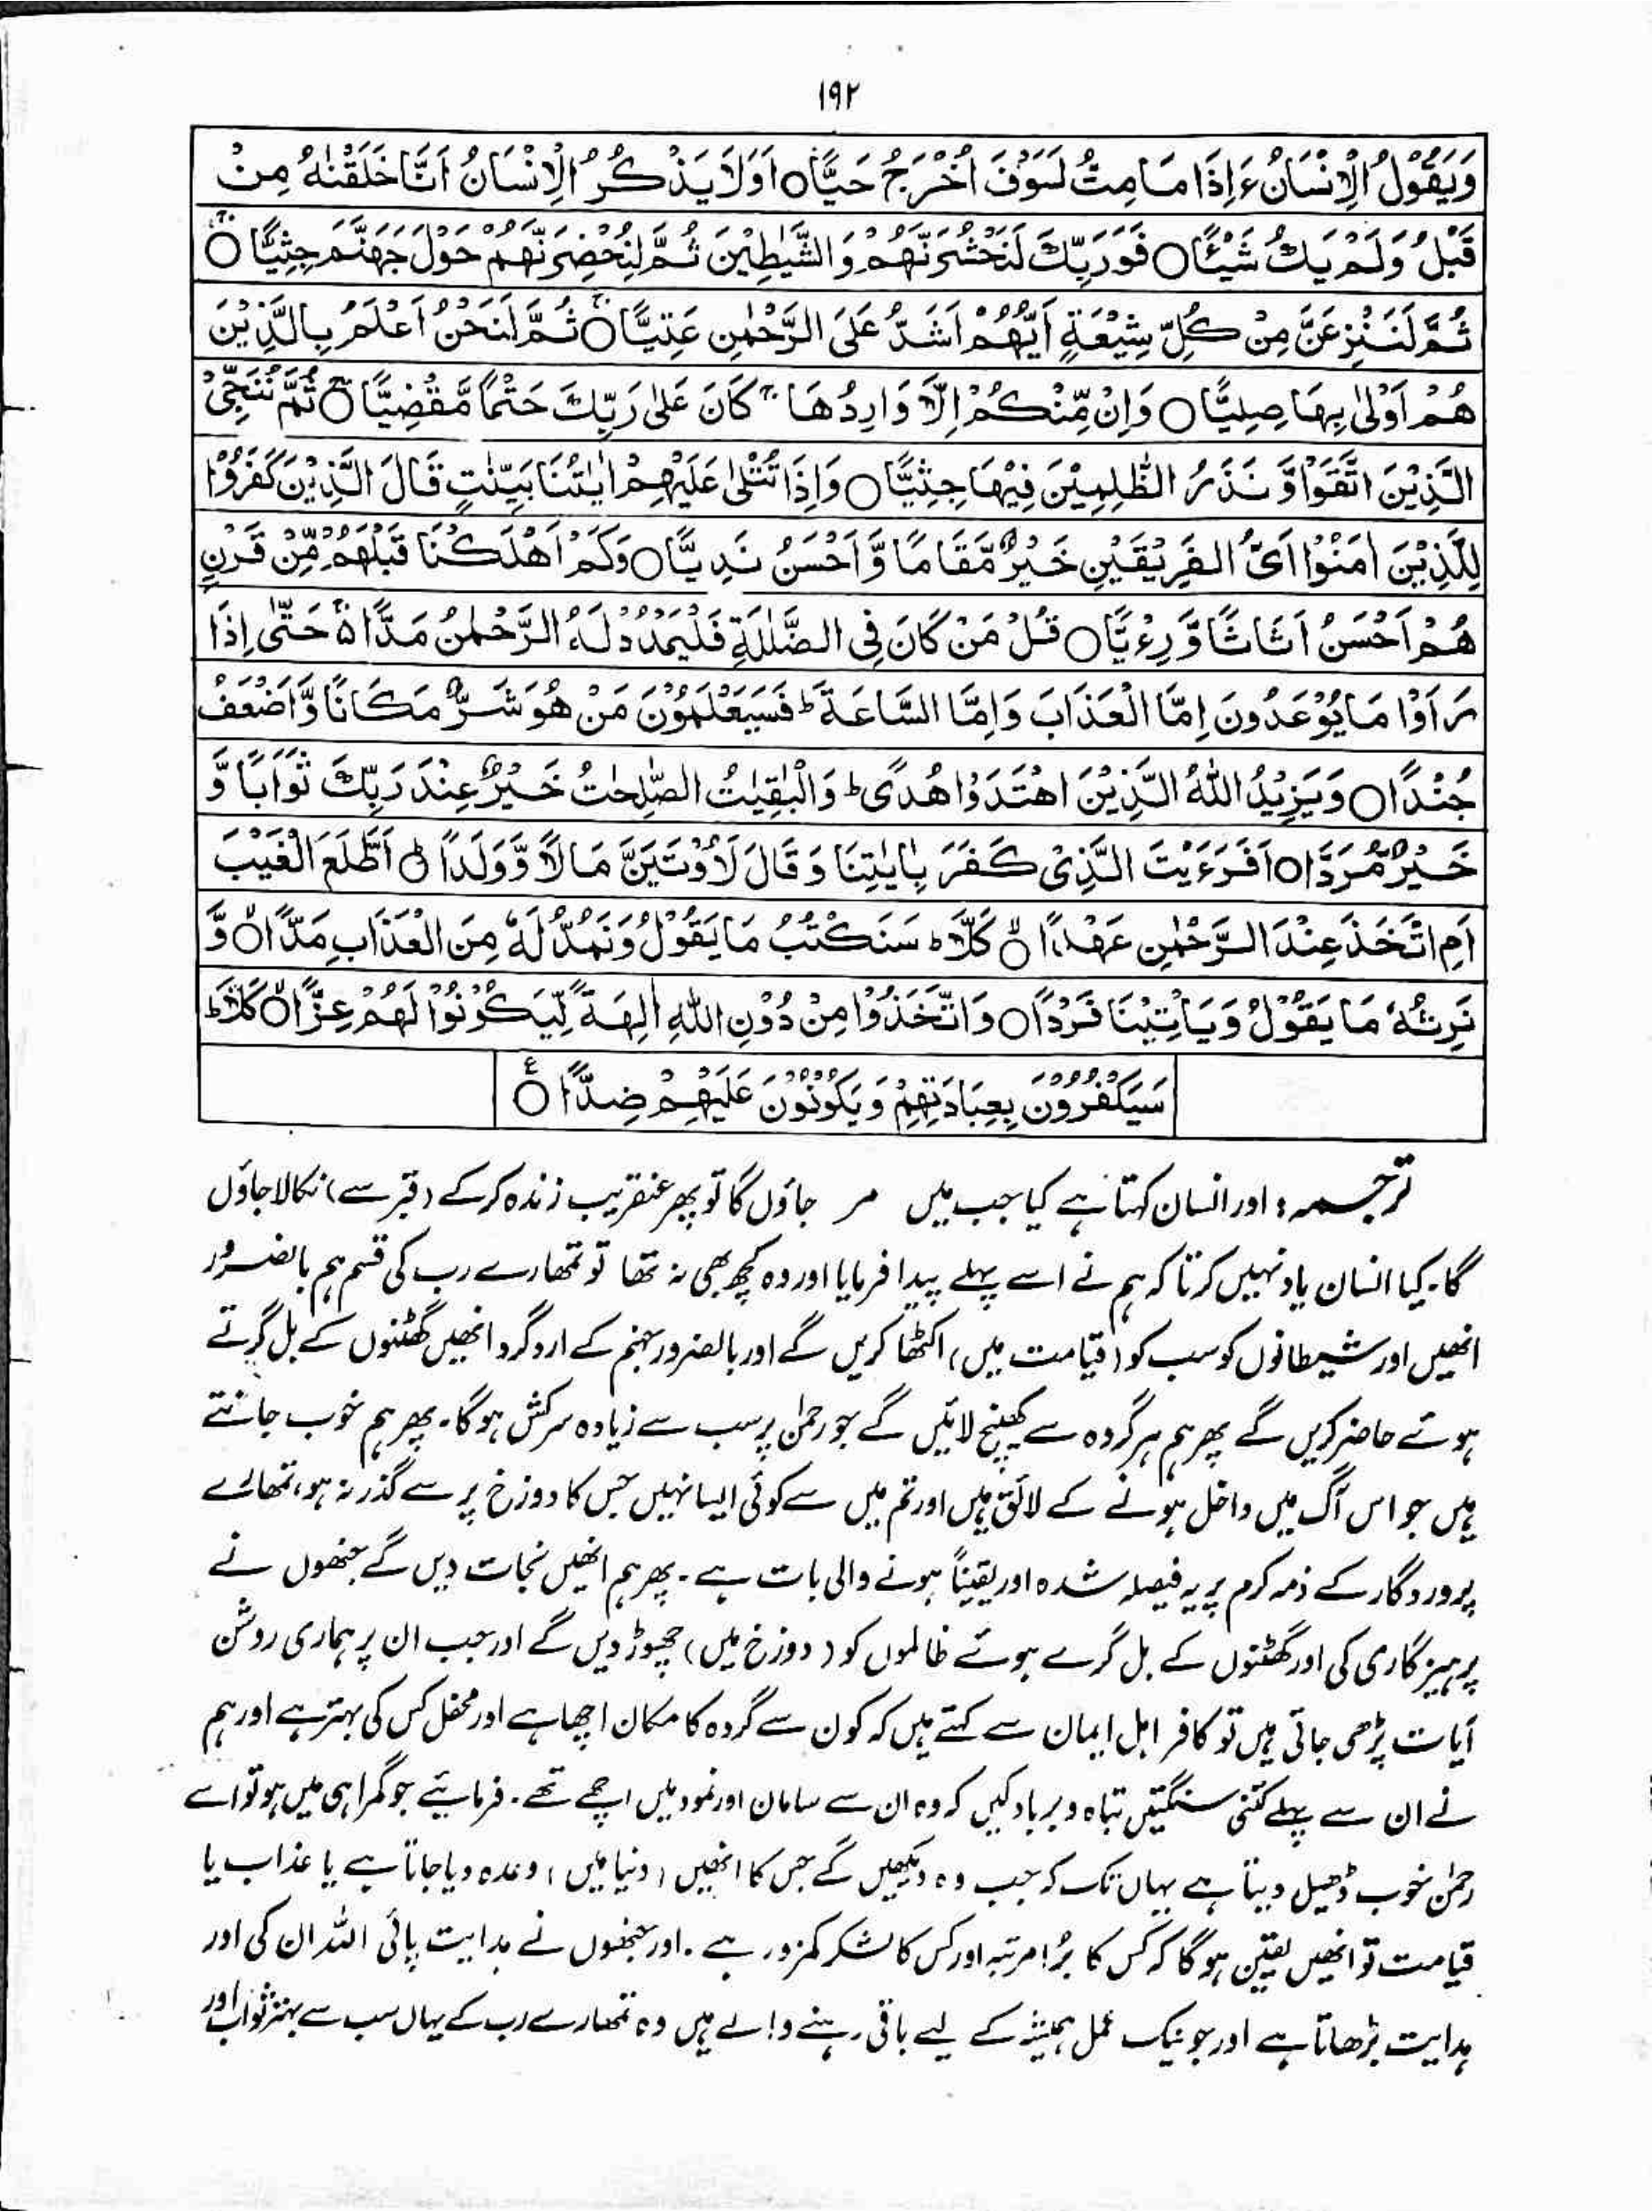 ۱۹۲
وَيَقُوْلُ الْاِنْسَانُ ءَاِذَا مَا مِتُّ لَسَوْفَ اُخْرَجُ حَيًّا ○ اَوَلَا يَذْكُرُ الْاِنْسَانُ اَنَّا خَلَقْنٰهُ مِنْ
قَبْلُ وَلَمْ يَكُ شَيْئًا ○ فَوَرَبِّكَ لَنَحْشُرَنَّهُمْ وَالشَّيٰطِيْنَ ثُمَّ لَنُحْضِرَنَّهُمْ حَوْلَ جَهَنَّمَ جِثِيًّا ○
ثُمَّ لَنَنْزِعَنَّ مِنْ كُلِّ شِيْعَةٍ اَيُّهُمْ اَشَدُّ عَلَى الرَّحْمٰنِ عِتِيًّا ○ ثُمَّ لَنَحْنُ اَعْلَمُ بِالَّذِيْنَ
هُمْ اَوْلٰى بِهَا صِلِيًّا ○ وَاِنْ مِّنْكُمْ اِلَّا وَارِدُهَا ۚ كَانَ عَلٰى رَبِّكَ حَتْمًا مَّقْضِيًّا ○ ثُمَّ نُنَجِّى
الَّذِيْنَ اتَّقَوْا وَّ نَذَرُ الظّٰلِمِيْنَ فِيْهَا جِثِيًّا ○ وَاِذَا تُتْلٰى عَلَيْهِمْ اٰيٰتُنَا بَيِّنٰتٍ قَالَ الَّذِيْنَ كَفَرُوْا
لِلَّذِيْنَ اٰمَنُوْا اَىُّ الْفَرِيْقَيْنِ خَيْرٌ مَّقَامًا وَّاَحْسَنُ نَدِيًّا ○ وَكَمْ اَهْلَكْنَا قَبْلَهُمْ مِّنْ قَرْنٍ
هُمْ اَحْسَنُ اَثَاثًا وَّرِءْيًا ○ قُلْ مَنْ كَانَ فِى الضَّلٰلَةِ فَلْيَمْدُدْ لَهُ الرَّحْمٰنُ مَدًّا ۵ حَتّٰى اِذَا
رَاَوْا مَا يُوْعَدُوْنَ اِمَّا الْعَذَابَ وَاِمَّا السَّاعَةَ ؕ فَسَيَعْلَمُوْنَ مَنْ هُوَ شَرٌّ مَّكَانًا وَّاَضْعَفُ
جُنْدًا ○ وَيَزِيْدُ اللّٰهُ الَّذِيْنَ اهْتَدَوْا هُدًى ؕ وَالْبٰقِيٰتُ الصّٰلِحٰتُ خَيْرٌ عِنْدَ رَبِّكَ ثَوَابًا وَّ
خَيْرٌ مَّرَدًّا ○ اَفَرَءَيْتَ الَّذِىْ كَفَرَ بِاٰيٰتِنَا وَقَالَ لَاُوْتَيَنَّ مَالًا وَّوَلَدًا ○ؕ اَطَّلَعَ الْغَيْبَ
اَمِ اتَّخَذَ عِنْدَ الرَّحْمٰنِ عَهْدًا ○ۙ كَلَّا ؕ سَنَكْتُبُ مَا يَقُوْلُ وَنَمُدُّ لَهٗ مِنَ الْعَذَابِ مَدًّا ○ۙ وَّ
نَرِثُهٗ مَا يَقُوْلُ وَيَاْتِيْنَا فَرْدًا ○ وَاتَّخَذُوْا مِنْ دُوْنِ اللّٰهِ اٰلِهَةً لِّيَكُوْنُوْا لَهُمْ عِزًّا ○ۙ كَلَّا ؕ
سَيَكْفُرُوْنَ بِعِبَادَتِهِمْ وَيَكُوْنُوْنَ عَلَيْهِمْ ضِدًّا ○ع
ترجمہ: اور انسان کہتا ہے کیا جب میں مر جاؤں گا تو پھر عنقریب زندہ کرکے (قبر سے) نکالا جاؤں
گا۔ کیا انسان یاد نہیں کرتا کہ ہم نے اسے پہلے پیدا فرمایا اور وہ کچھ بھی نہ تھا تو تمھارے رب کی قسم ہم بالضرور
انھیں اور شیطانوں کو سب کو (قیامت میں) اکٹھا کریں گے اور بالضرور جہنم کے ارد گرد انھیں گھٹنوں کے بل گرتے
ہوئے حاضر کریں گے پھر ہم ہر گروہ سے کھینچ لائیں گے جو رحمٰن پر سب سے زیادہ سرکش ہوگا۔ پھر ہم خوب جانتے
ہیں جو اس آگ میں داخل ہونے کے لائق ہیں اور تم میں سے کوئی ایسا نہیں جس کا دوزخ پر سے گذر نہ ہو، تمھارے
پروردگار کے ذمہ کرم پر یہ فیصلہ شدہ اور یقیناً ہونے والی بات ہے۔ پھر ہم انھیں نجات دیں گے جنھوں نے
پرہیزگاری کی اور گھٹنوں کے بل گرے ہوئے ظالموں کو (دوزخ میں) چھوڑ دیں گے اور جب ان پر ہماری روشن
آیات پڑھی جاتی ہیں تو کافر اہل ایمان سے کہتے ہیں کہ کون سے گروہ کا مکان اچھا ہے اور محفل کس کی بہتر ہے اور ہم
نے ان سے پہلے کتنی سنگتیں تباہ و برباد کیں کہ وہ ان سے سامان اور نمود میں اچھے تھے۔ فرمائیے جو گمراہی میں ہو تو اسے
رحمٰن خوب ڈھیل دیتا ہے یہاں تک کہ جب وہ دیکھیں گے جس کا انھیں (دنیا میں) وعدہ دیا جاتا ہے یا عذاب یا
قیامت تو انھیں یقین ہوگا کہ کس کا بُرا مرتبہ اور کس کا لشکر کمزور ہے۔ اور جنھوں نے ہدایت پائی اللہ ان کی اور
ہدایت بڑھاتا ہے اور جو نیک عمل ہمیشہ کے لیے باقی رہنے والے ہیں وہ تمھارے رب کے یہاں سب سے بہتر ثواب اور